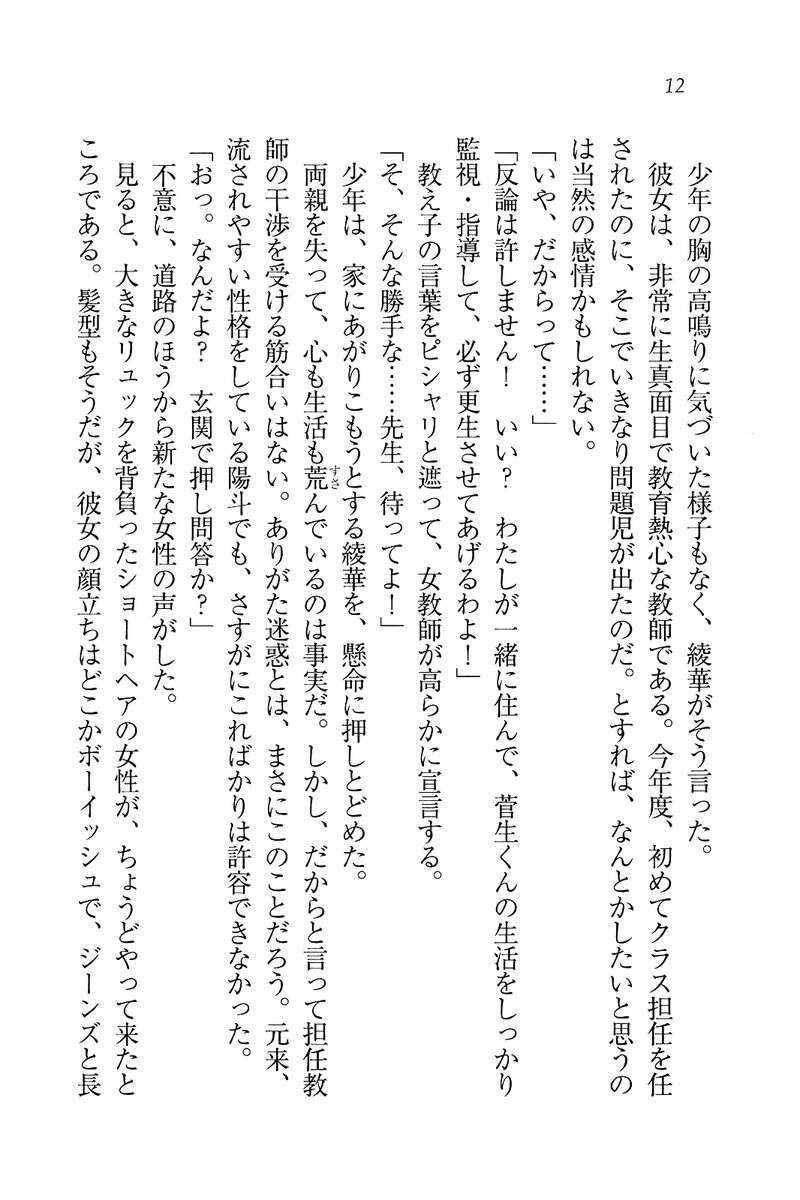 12
少年の胸の高鳴りに気づいた様子もなく、綾華がそう言った。
彼女は、非常に生真面目で教育熱心な教師である。今年度、初めてクラス担任を任
されたのに、そこでいきなり問題児が出たのだ。とすれば、なんとかしたいと思うの
は当然の感情かもしれない。
「いや、だからって……」
「反論は許しません！　いい？　わたしが一緒に住んで、菅生くんの生活をしっかり
監視・指導して、必ず更生させてあげるわよ！」
教え子の言葉をピシャリと遮って、女教師が高らかに宣言する。
「そ、そんな勝手な……先生、待ってよ！」
少年は、家にあがりこもうとする綾華を、懸命に押しとどめた。
両親を失って、心も生活も荒すさんでいるのは事実だ。しかし、だからと言って担任教
師の干渉を受ける筋合いはない。ありがた迷惑とは、まさにこのことだろう。元来、
流されやすい性格をしている陽斗でも、さすがにこればかりは許容できなかった。
「おっ。なんだよ？　玄関で押し問答か？」
不意に、道路のほうから新たな女性の声がした。
見ると、大きなリュックを背負ったショートヘアの女性が、ちょうどやって来たと
ころである。髪型もそうだが、彼女の顔立ちはどこかボーイッシュで、ジーンズと長